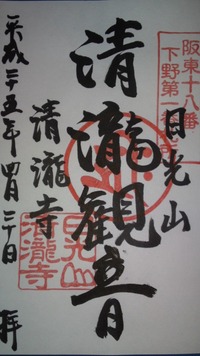 阪東十八番
下野第一
日光山
清瀧観音
清瀧寺
日光山
清瀧寺
平成二十五年四月二十日 拝